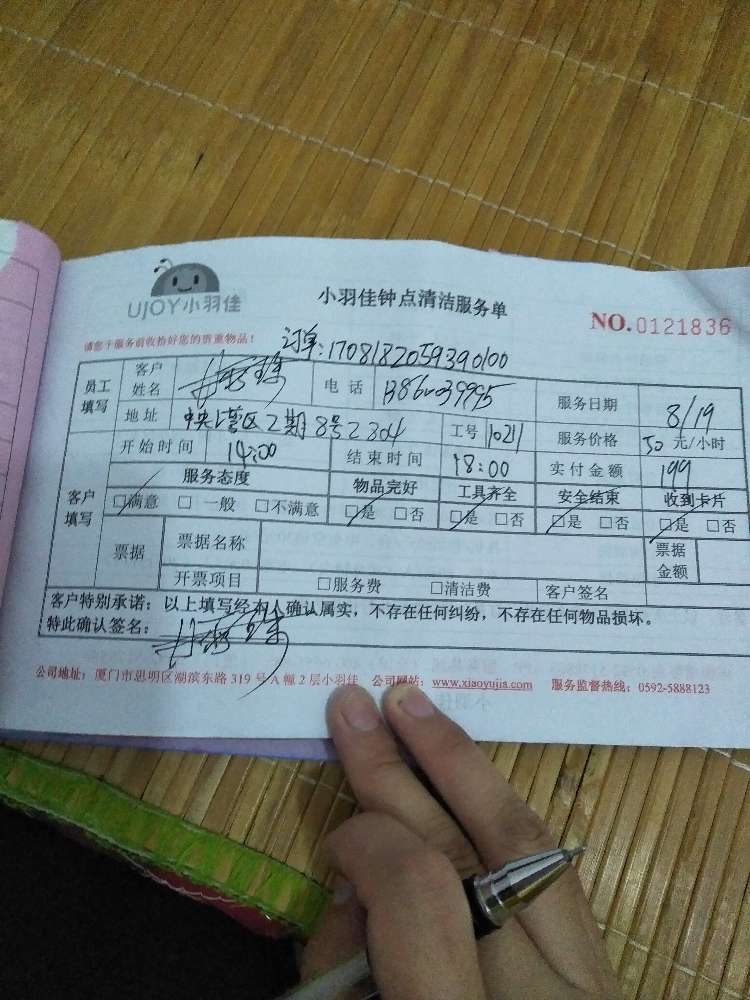 UJOY小羽佳
小羽佳钟点清洁服务单
NO.0121836
请您于服务前收拾好您的贵重物品！
订单:1708182059390100
员工填写 客户姓名 电话 服务日期 8/19
地址 中央湾区2期8号2304 工号 10211 服务价格 50 元/小时
客户填写 开始时间 14:00 结束时间 18:00 实付金额 199
服务态度 物品完好 工具齐全 安全结束 收到卡片
□满意 □一般 □不满意 □是 □否 □是 □否 □是 □否 □是 □否
票据 票据名称 票据金额
开票项目 □服务费 □清洁费 客户签名
客户特别承诺：以上填写经本人确认属实，不存在任何纠纷，不存在任何物品损坏。
特此确认签名：
公司地址：厦门市思明区湖滨东路 319 号 A 幢 2 层小羽佳 公司网站：www.xiaoyujia.com 服务监督热线：0592-5888123